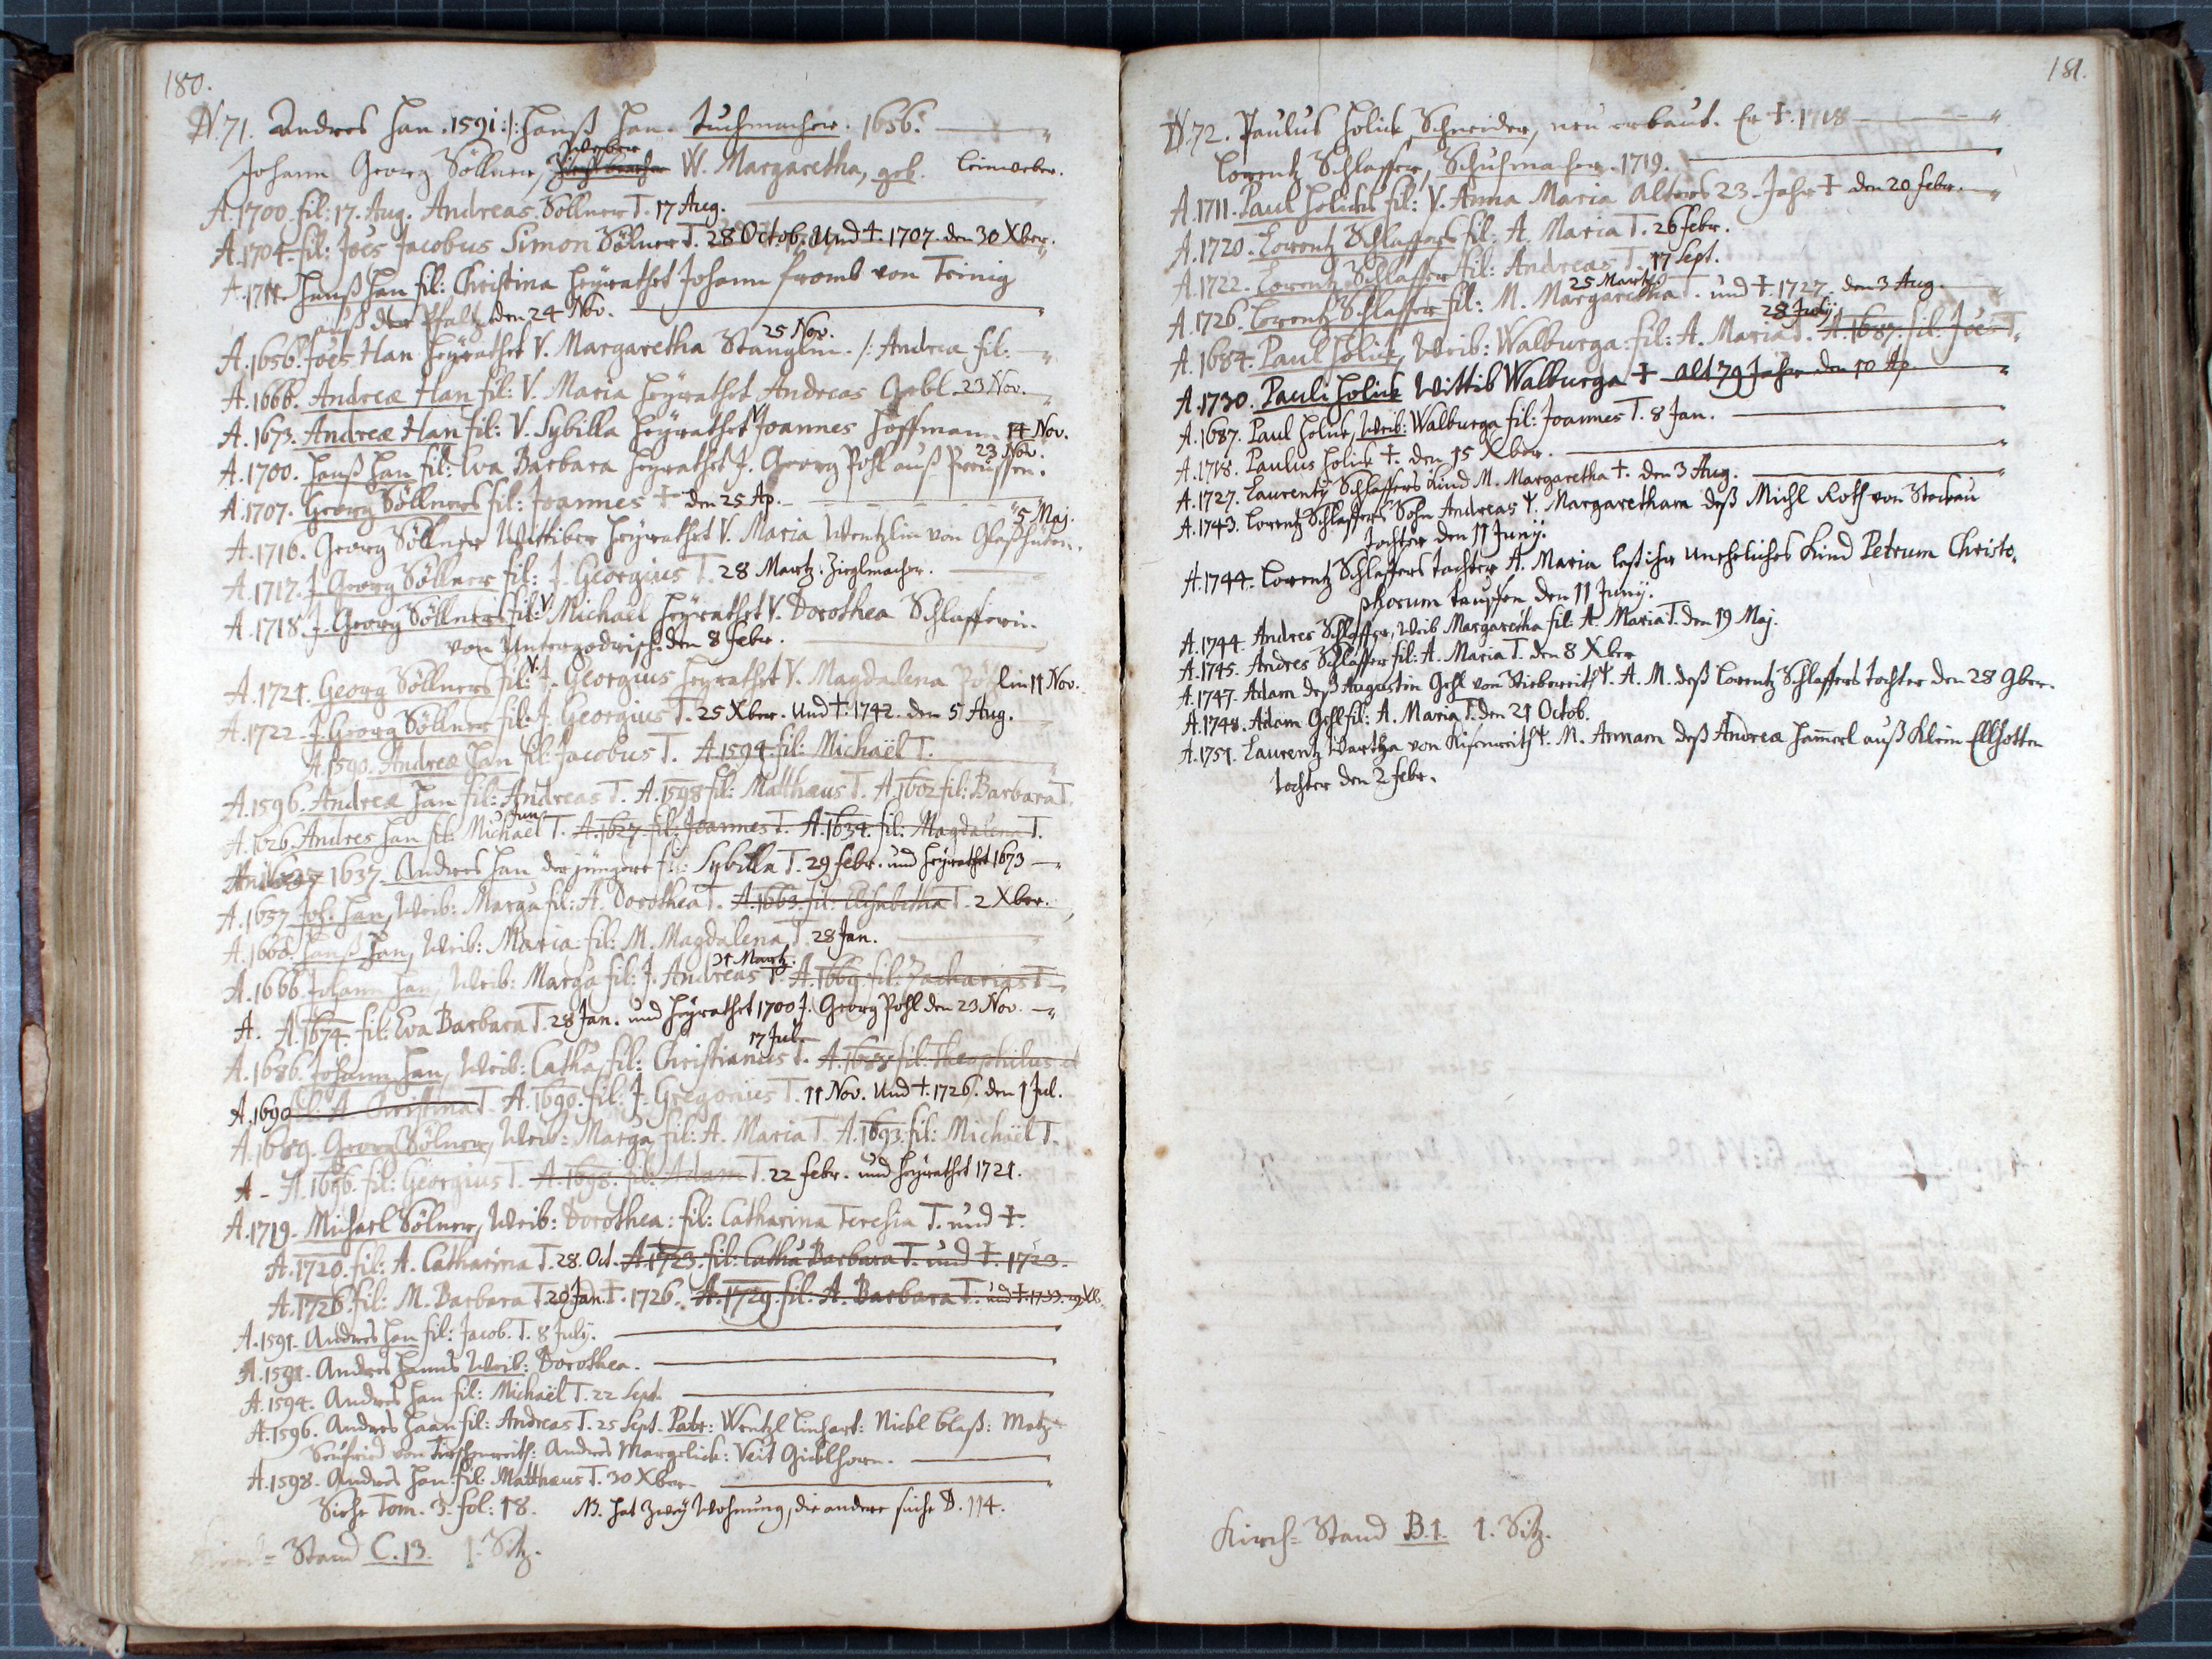 180.
N. 71. Andres Han. 1591 :/: Hanß Han. Tuchmacher. 1656.
Weber
Johann Georg Söllner, W. Margaretha, geb. Leinweber.
A. 1700. fil: 17. Aug. Andreas Söllner T. 17 Aug.
A. 1704. fil: Joës Jacobus Simon Sölner T. 28 Octob. Und †. 1707. den 30 Xber.
A. 1711. Hanß Han fil: Christina heÿrathet Johann fromb von Teinig
auß der Pfaltz den 24 Nov.
25 Nov.
A. 1656. Joës Han heÿrathet V. Margaretha Stanglin. /: Andreæ fil:
A. 1666. Andreæ Han fil: V. Maria heÿrathet Andreas Gebl. 23 Nov.
A. 1673. Andreæ Han fil: V. Sybilla heÿrathet Joannes Hoffmann 14 Nov.
23 Nov.
A. 1700. Hanß Han fil: Eva Barbara heÿrathet J. Georg Pohl auß Preussen.
A. 1707. Georg Söllners fil: Joannes † den 25 Ap.
5 Maj.
A. 1716. Georg Söllner Wittiber heÿrathet V. Maria Wentzlin von Glaßhüten.
A. 1717. J. Georg Söllner fil: J. Georgius T. 28 Martz. Zieglmacher.
A. 1718. J. Georg Söllners fil: V. Michaël heÿrathet V. Dorothea Schlafferin.
von Untergodrisch. den 8 febr.
A. 1721. Georg Söllners fil: V. J. Georgius heÿrathet V. Magdalena Pöhlin 11 Nov.
A. 1722. J. Georg Söllner fil: J. Georgius T. 25 Xber. Und †. 1742. den 5 Aug.
A. 1590. Andreæ Han fil: Jacobus T. A. 1594. fil: Michaël T.
A. 1596. Andreæ Han fil: Andreas T. A. 1598 fil: Matthæus T. A. 1602 fil: Barbara T.
A. 1626. Andres Han fil: Michaël T. A. 1627. fil: Joannes T. A. 1634. fil: Magdalena T.
1637. Andres Han der jüngere fil: Sybilla T. 29 febr. und heÿrathet 1673
A. 1657. Joh. Han, Weib: Marga fil: A. Dorothea T. A. 1663. fil: Elisabetha T. 2 Xber.
A. 1668. Hanß Han, Weib: Maria fil: M. Magdalena T. 28 Jan.
21 Martz.
A. 1666. Johann Han, Weib: Marga fil: J. Andreas T. A. 1669. fil: Zacharias T.
A. A. 1674. fil: Eva Barbara T. 28 Jan. und heÿrathet 1700 J. Georg Pohl den 23 Nov.
17 Jul.
A. 1686. Johann Han, Weib: Catha, fil: Christianus T. A. 1688 fil: Theophilus et
A. 1690 fil: A. Christina T. A. 1690. fil: J. Gregorius T. 11 Nov. Und †. 1726. den 1 Jul.
A. 1689. Georg Sölner, Weib: Marga, fil: A. Maria T. A. 1693. fil: Michaël T.
A - A. 1696. fil: Georgius T. A. 1698. fil: Adam T. 22 febr. und heÿrathet 1721.
A. 1719. Michael Sölner, Weib: Dorothea: fil: Catharina Teresia T. und †.
A. 1720. fil: A. Catharina T. 28. Oct. A. 1723. fil: Catha Barbara T. und †. 1723.
A. 1726. fil: M. Barbara T. 20 Jan. †. 1726. A. 1729. fil: A. Barbara T. und †. 1733. 29 Xb.
A. 1591. Andres Han fil: Jacob. T. 8 Julÿ.
A. 1591. Andres Hanns Weib: Dorothea.
A. 1594. Andres Han fil: Michaël T. 22 Sept.
A. 1596. Andres Haan fil: Andreas T. 25 Sept. Patr: Wentzl Linhart: Nickl Blaß: Motz
Seufried von Tirschenreith: Andres Margelick: Veit Gicklhorn.
A. 1598. Andres Han fil: Matthæus T. 30 Xber.
Siehe Tom. 3. fol: 18. NB. hat zweÿ Wohnung, die andere suche N. 114.
Stand C. 13. 1. Sitz.
181.
N. 72. Paulus Holick Schneider, neu erbaut. Er †. 1718
Lorentz Schlaffer, Schuhmacher. 1719.
A. 1711. Paul Holicks fil: V. Anna Maria Alters 23 Jahr † den 20 febr.
A. 1720. Lorentz Schlaffers fil: A. Maria T. 26 febr.
A. 1722. Lorentz Schlaffer fil: Andreas T. 17 Sept.
25 Martz
A. 1726. Lorentz Schlaffer fil: M. Margaretha T. und †. 1727. den 3 Aug.
28 Julÿ
A. 1684. Paul Holick, Weib: Walburga: fil: A. Maria T. A. 1687. fil: Joës T.
A. 1730. Pauli Holick Wittib Walburga † alt 79 Jahr den 10 Ap
A. 1687. Paul Holick, Weib: Walburga fil: Joannes T. 8 Jan.
A. 1718. Paulus Holick †. den 15 Xber.
A. 1727. Laurentÿ Schlaffers Kind M. Margaretha †. den 3 Aug.
A. 1743. Lorentz Schlaffers Sohn Andreas Margaretham deß Michl Roth von Stockau
Tochter den 11 Junÿ.
A. 1744. Lorentz Schlaffers Tochter A. Maria last ihr Uneheliches Kind Petrum Christo-
phorum tauffen den 11 Junÿ.
A. 1744. Andres Schlaffer, Weib Margaretha fil: A. Maria T. den 19 Maj.
A. 1745. Andres Schlaffer fil: A. Maria T. den 8 Xber
A. 1747. Adam deß Augustin Gehl von A. M. deß Lorentz Schlaffers Tochter den 28 9ber.
A. 1748. Adam Gehl fil: A. Maria T. den 21 Octob.
A. 1751. Laurentz Bartha von M. Annam deß Andreæ Hamerl auß Klein Ellhotten
Tochter den 2 febr.
Kirch= Stand B. 1. 1. Sitz.